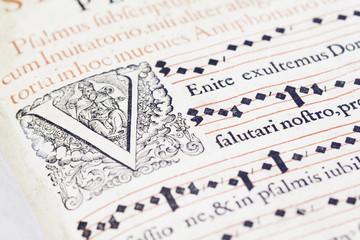 Psalmus subscriptus
cum Inuitatorio, nisi aliter
toria in hoc inuenies Antiphonario
VEnite exultemus Do
salutari nostro, pr
ne, & in psalmis iubil